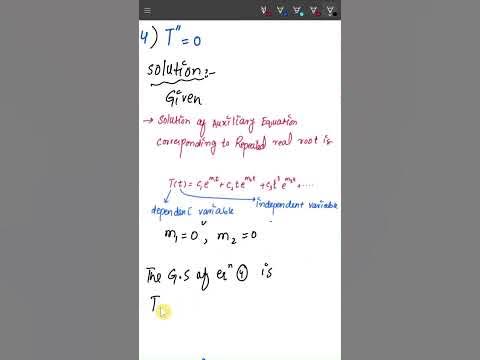 4) T" = 0
Solution:-
Given
→ Solution of Auxiliary Equation
corresponding to Repeated real root is
T(t) = C₁e^{m₁t} + C₂te^{m₂t} + C₃t²e^{m₃t} + ....
dependent variable
independent variable
m₁=0, m₂=0
The G.S of eqⁿ ④ is
T